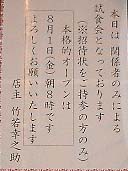 本日は関係者のみによる
試食会となっております
(※招待状をご持参の方のみ)
本格的オープンは
８月１日(金)朝８時です
よろしくお願いいたします
店主 竹若幸之助